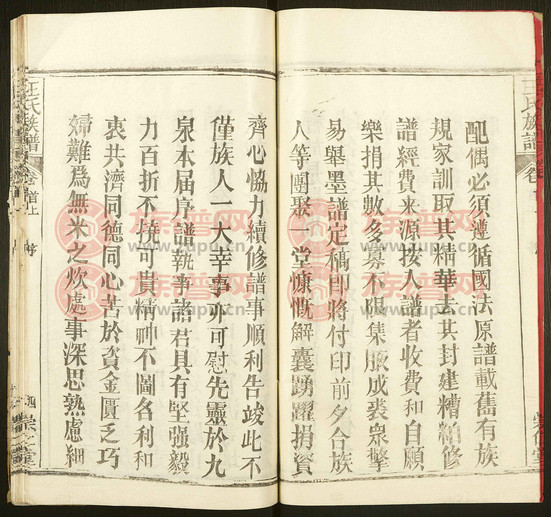 配偶必須遵循國法原譜載舊有族
規家訓取其精華去其封建糟粕修
譜經費來源按人譜者收費和自願
樂捐其數多寡不限集腋成裘衆擎
易舉墨譜定稿即將付印前夕合族
人等團聚一堂慷慨解囊踴躍捐資
齊心恊力續修譜事順利告竣此不
僅族人一大幸事亦可慰先靈於九
泉本届序譜執事諸君具有堅强毅
力百折不撓可貴精神不圖名利和
衷共濟同德同心苦於資金匱乏巧
婦難爲無米之炊處事深思熟慮細
汪氏族譜 卷首上 序
族谱网
www.zupu.cn
族谱网
www.zupu.cn
族谱网
www.zupu.cn
族谱网
www.zupu.cn